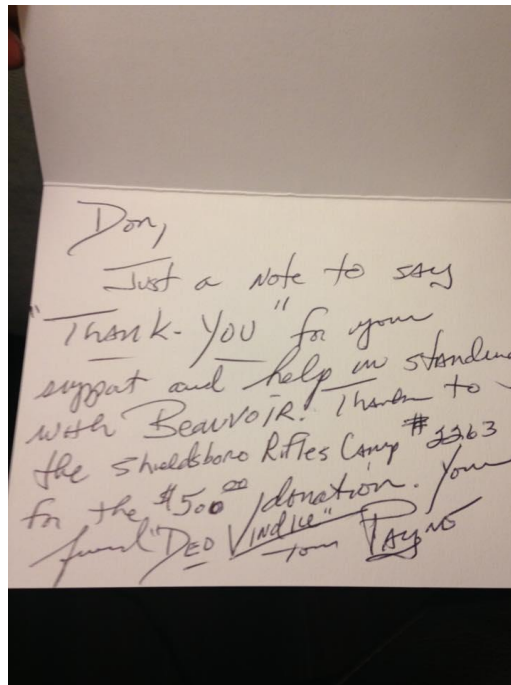 Don,
Just a Note to say
"Thank-You" for your
support and help in standing
with Beauvoir. Thanks to
the Shieldsboro Rifles Camp #2263
for the $500.00 donation. Your
friend "Deo Vindice"
Tom Payne